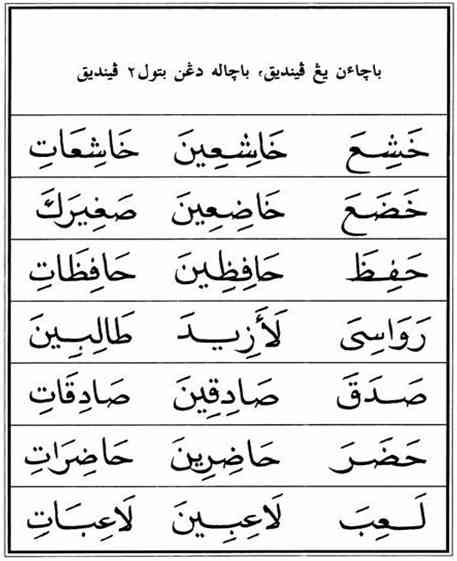 باچاٴن يڠ ڤينديق، باچاله دڠن بتول٢ ڤينديق
خَشِعَ خَاشِعِينَ خَاشِعَاتِ
خَضَعَ خَاضِعِينَ صَغِيرَكَ
حَفِظَ حَافِظِينَ حَافِظَاتِ
رَوَاسِىَ لَأَزِيدَ طَالِبِينَ
صَدَقَ صَادِقِينَ صَادِقَاتِ
حَضَرَ حَاضِرِينَ حَاضِرَاتِ
لَعِبَ لَاعِبِينَ لَاعِبَاتِ